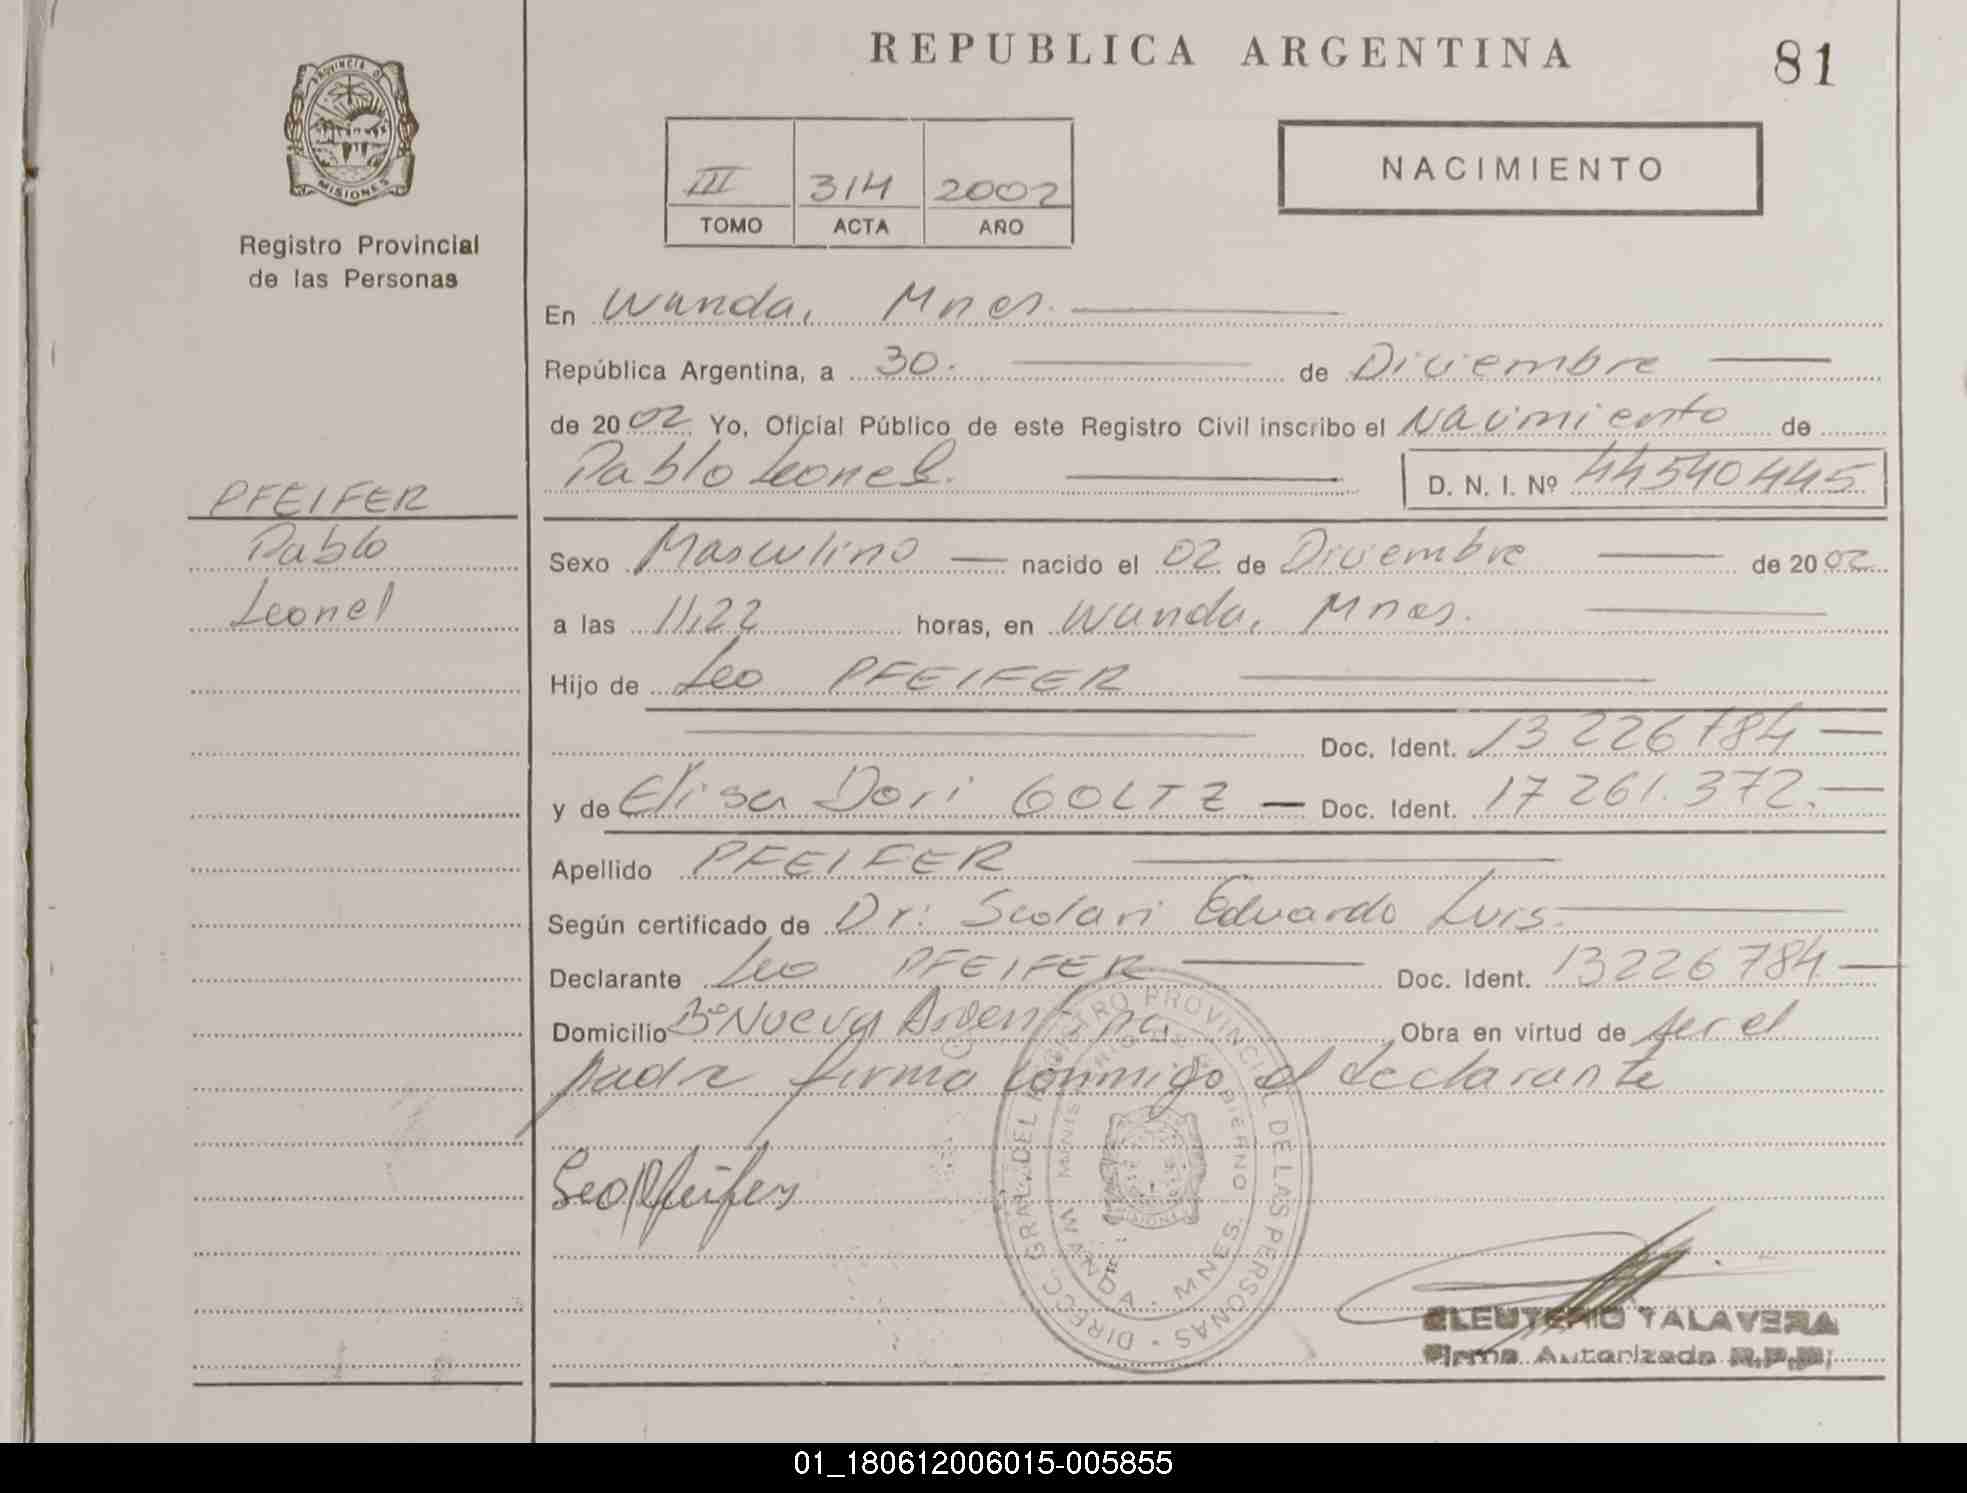 REPUBLICA ARGENTINA
81
PROVINCIA DE
MISIONES
Registro Provincial
de las Personas
III 314 2002
TOMO ACTA AÑO
NACIMIENTO
En Wanda, Mnes.
República Argentina, a 30. de Diciembre
de 2002 Yo, Oficial Público de este Registro Civil inscribo el Nacimiento de
Pablo Leonel. D. N. I. Nº 44540445
PFEIFER
Pablo
Leonel
Sexo Masculino nacido el 02 de Diciembre de 2002
a las 11,22 horas, en Wanda, Mnes.
Hijo de Leo PFEIFER
Doc. Ident. 13226784
y de Elisa Dori GOLTZ Doc. Ident. 17261.372.
Apellido PFEIFER
Según certificado de Dr: Scolari Eduardo Luis.
Declarante Leo PFEIFER Doc. Ident. 13226784
Domicilio Bº Nueva Argentina, Obra en virtud de ser el
padre firma conmigo el declarante
Leo Pfeifer
DIRECC. GRAL. DEL REGISTRO PROVINCIAL DE LAS PERSONAS
MINISTERIO DE GOBIERNO
WANDA - MNES.
ELEUTERIO TALAVERA
Firma Autorizada R.P.P.
01_180612006015-005855